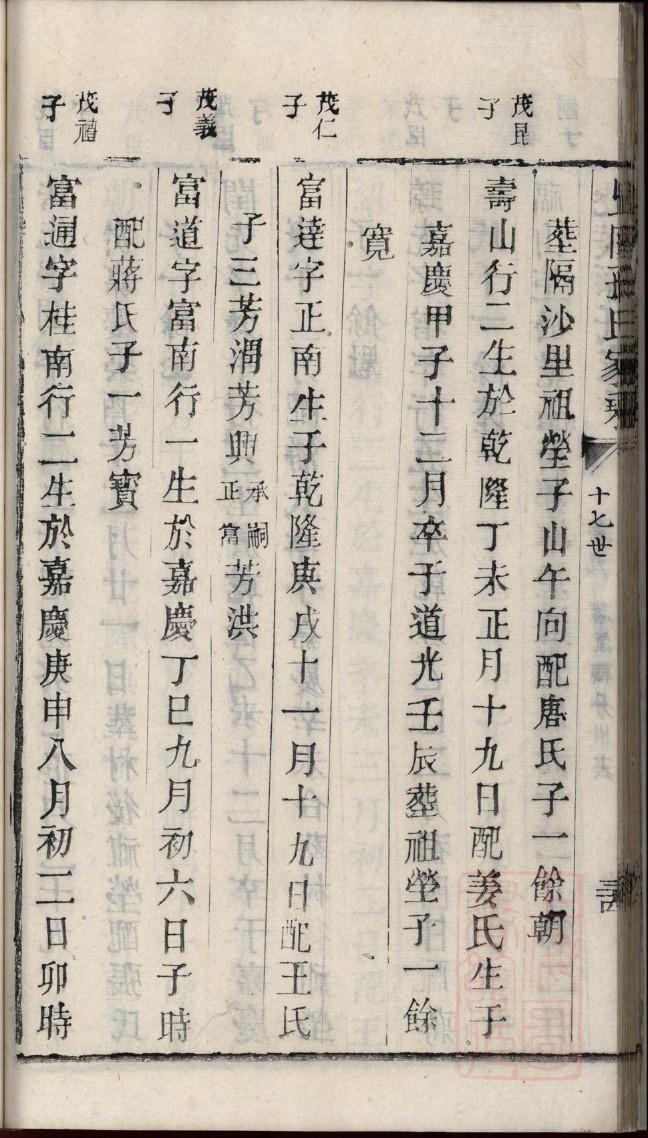 十七世
塟隔沙里祖塋子山午向配唐氏子一餘朝
茂昆
子
壽山行二生於乾隆丁未正月十九日配姜氏生于
嘉慶甲子十二月卒于道光壬辰塟祖塋子一餘
寬
茂仁
子
富達字正南生于乾隆庚戌十一月十九日配王氏
子三芳潤芳興承嗣正富芳洪
茂義
子
富道字富南行一生於嘉慶丁巳九月初六日子時
配蔣氏子一芳寳
茂禧
子
富通字桂南行二生於嘉慶庚申八月初二日卯時